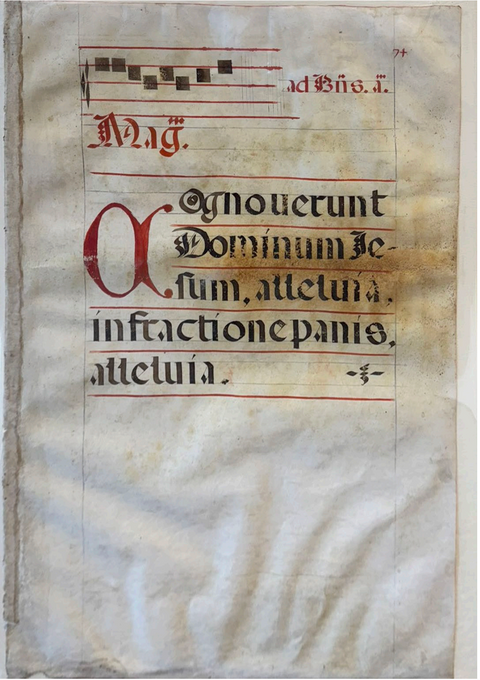 74
ad Bñs. ã.
Mag̃.
COgnouerunt
Dominum Je-
sum, alleluia,
in fractione panis,
alleluia.